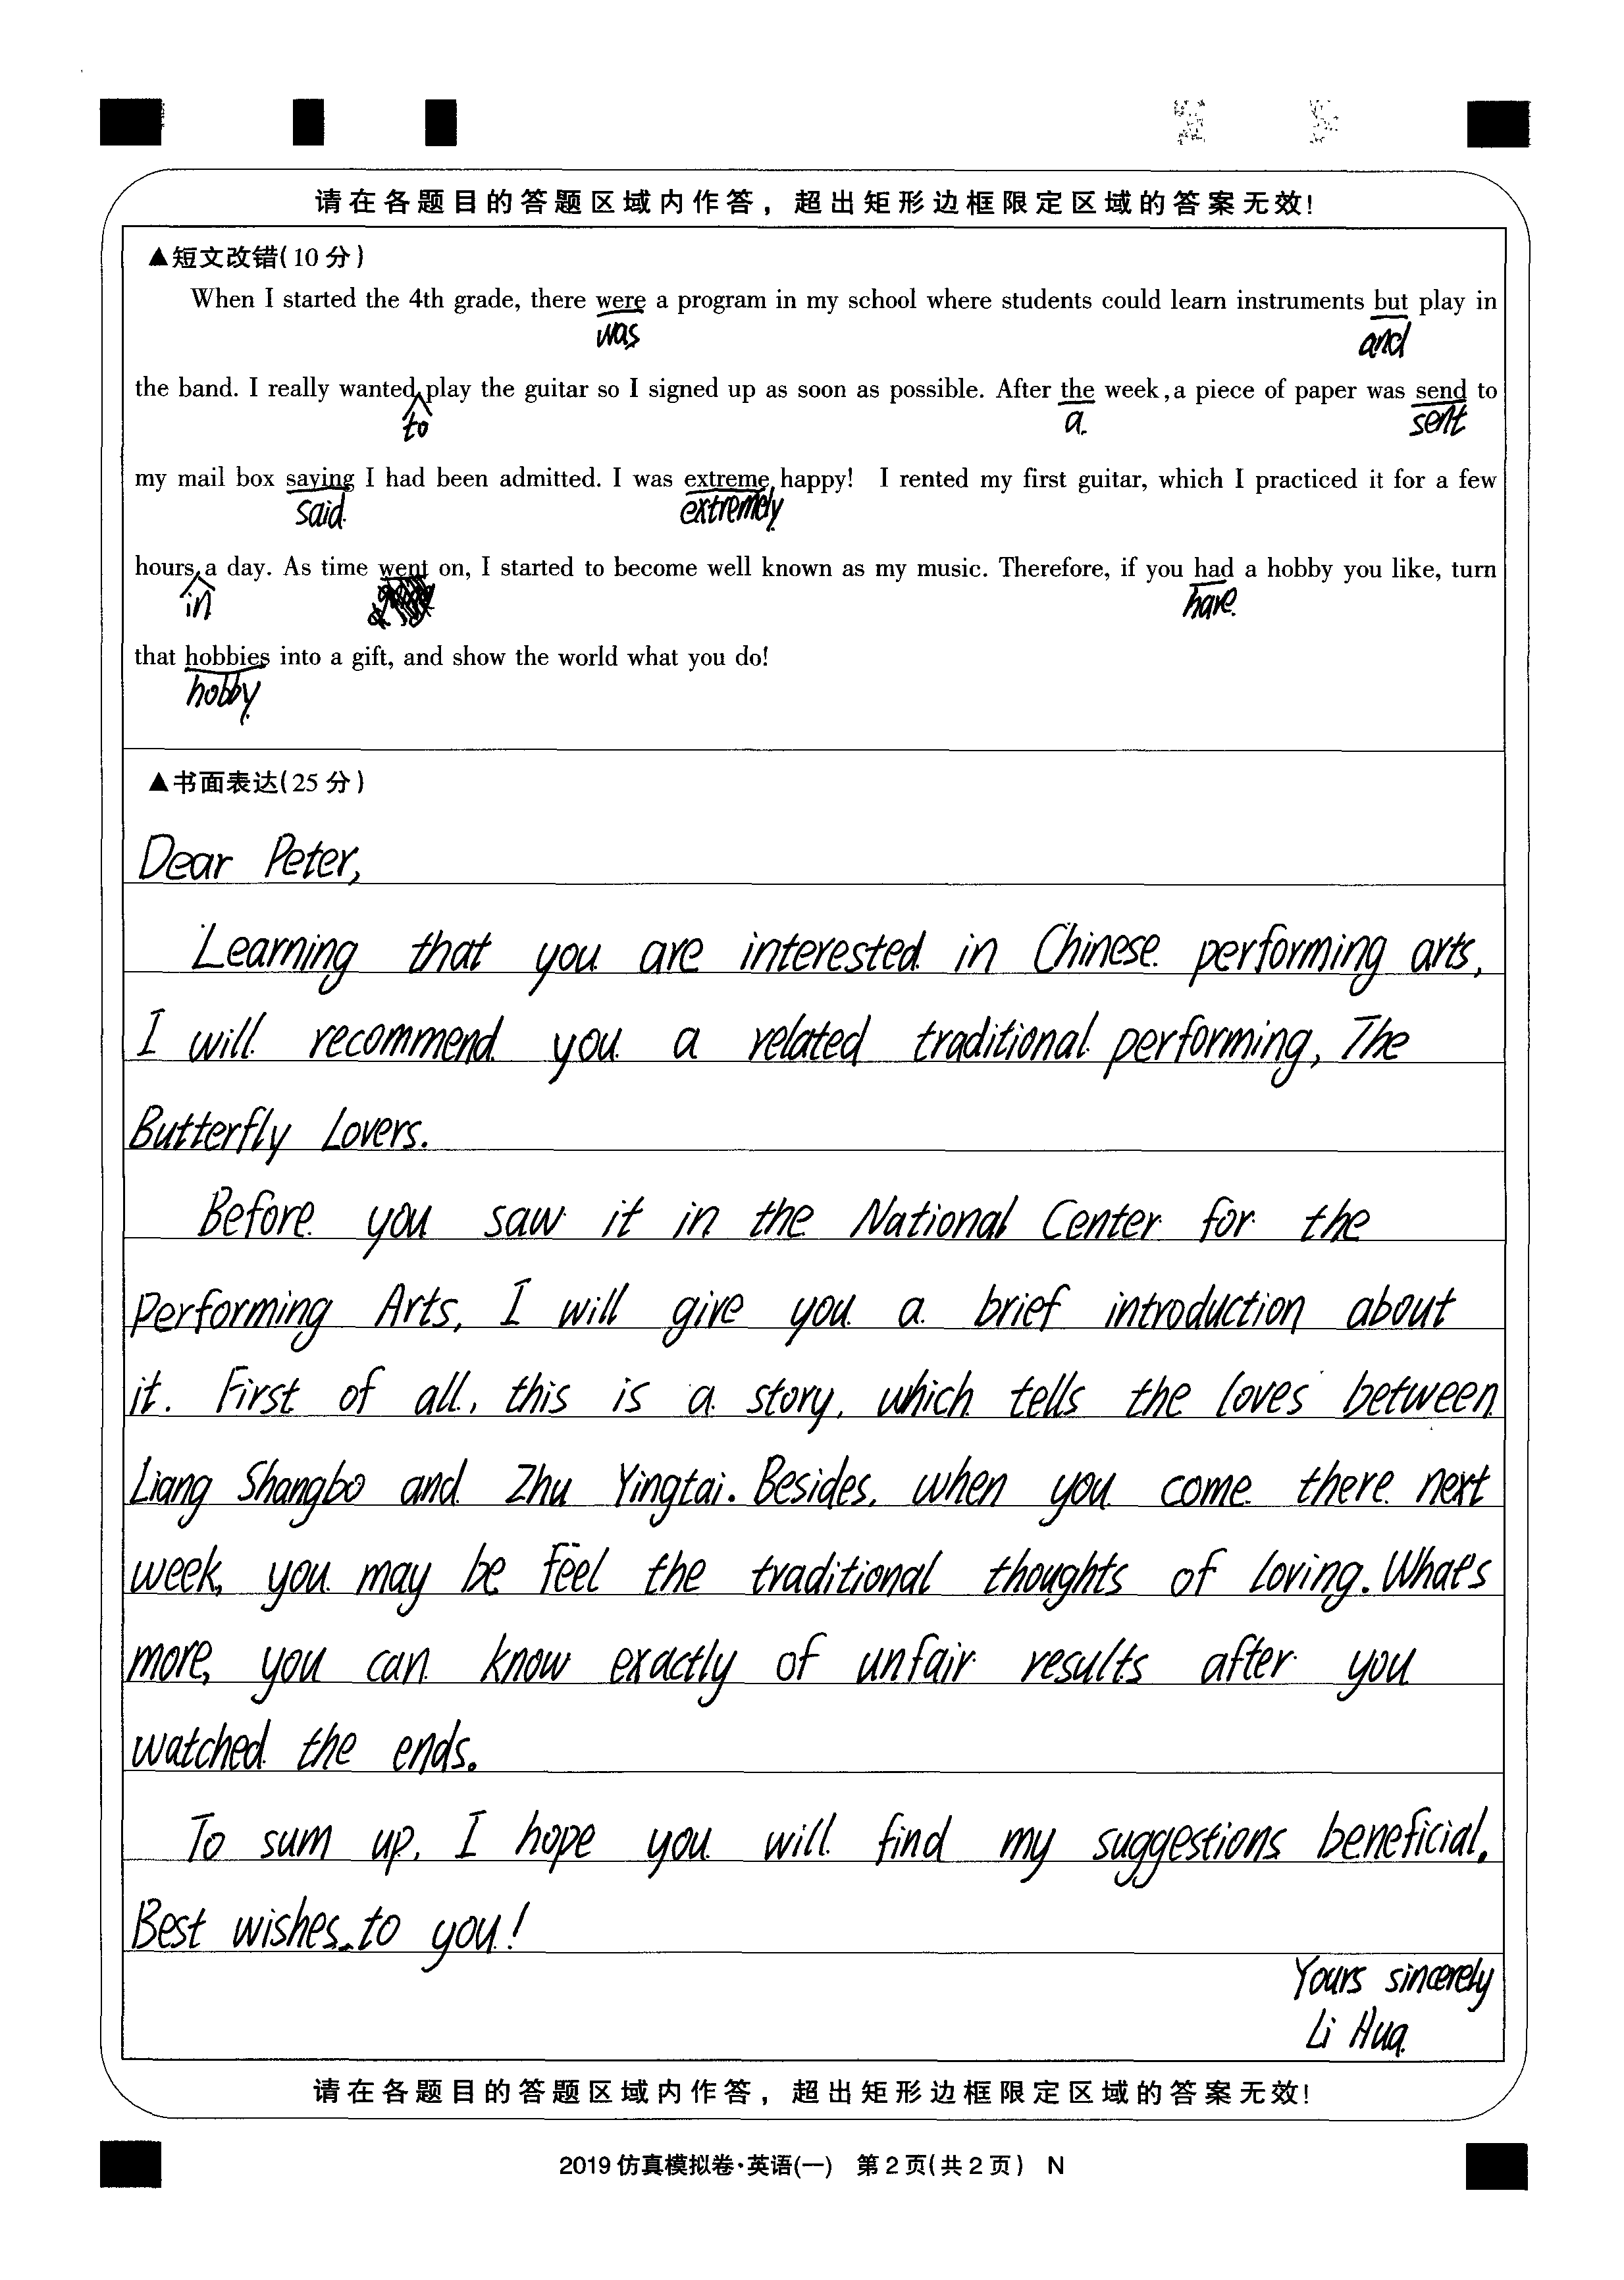 请在各题目的答题区域内作答，超出矩形边框限定区域的答案无效!
▲短文改错(10分)
When I started the 4th grade, there were a program in my school where students could learn instruments but play in
was and
the band. I really wanted play the guitar so I signed up as soon as possible. After the week, a piece of paper was send to
to a sent
my mail box saying I had been admitted. I was extreme happy! I rented my first guitar, which I practiced it for a few
said extremely
hours a day. As time went on, I started to become well known as my music. Therefore, if you had a hobby you like, turn
in have
that hobbies into a gift, and show the world what you do!
hobby
▲书面表达(25分)
Dear Peter,
Learning that you are interested in Chinese performing arts,
I will recommend you a related traditional performing, The
Butterfly Lovers.
Before you saw it in the National Center for the
Performing Arts, I will give you a brief introduction about
it. First of all, this is a story, which tells the loves between
Liang Shangbo and Zhu Yingtai. Besides, when you come there next
week, you may be feel the traditional thoughts of loving. What's
more, you can know exactly of unfair results after you
watched the ends.
To sum up, I hope you will find my suggestions beneficial.
Best wishes to you!
Yours sincerely
Li Hua
请在各题目的答题区域内作答，超出矩形边框限定区域的答案无效!
2019仿真模拟卷·英语(一) 第2页(共2页) N